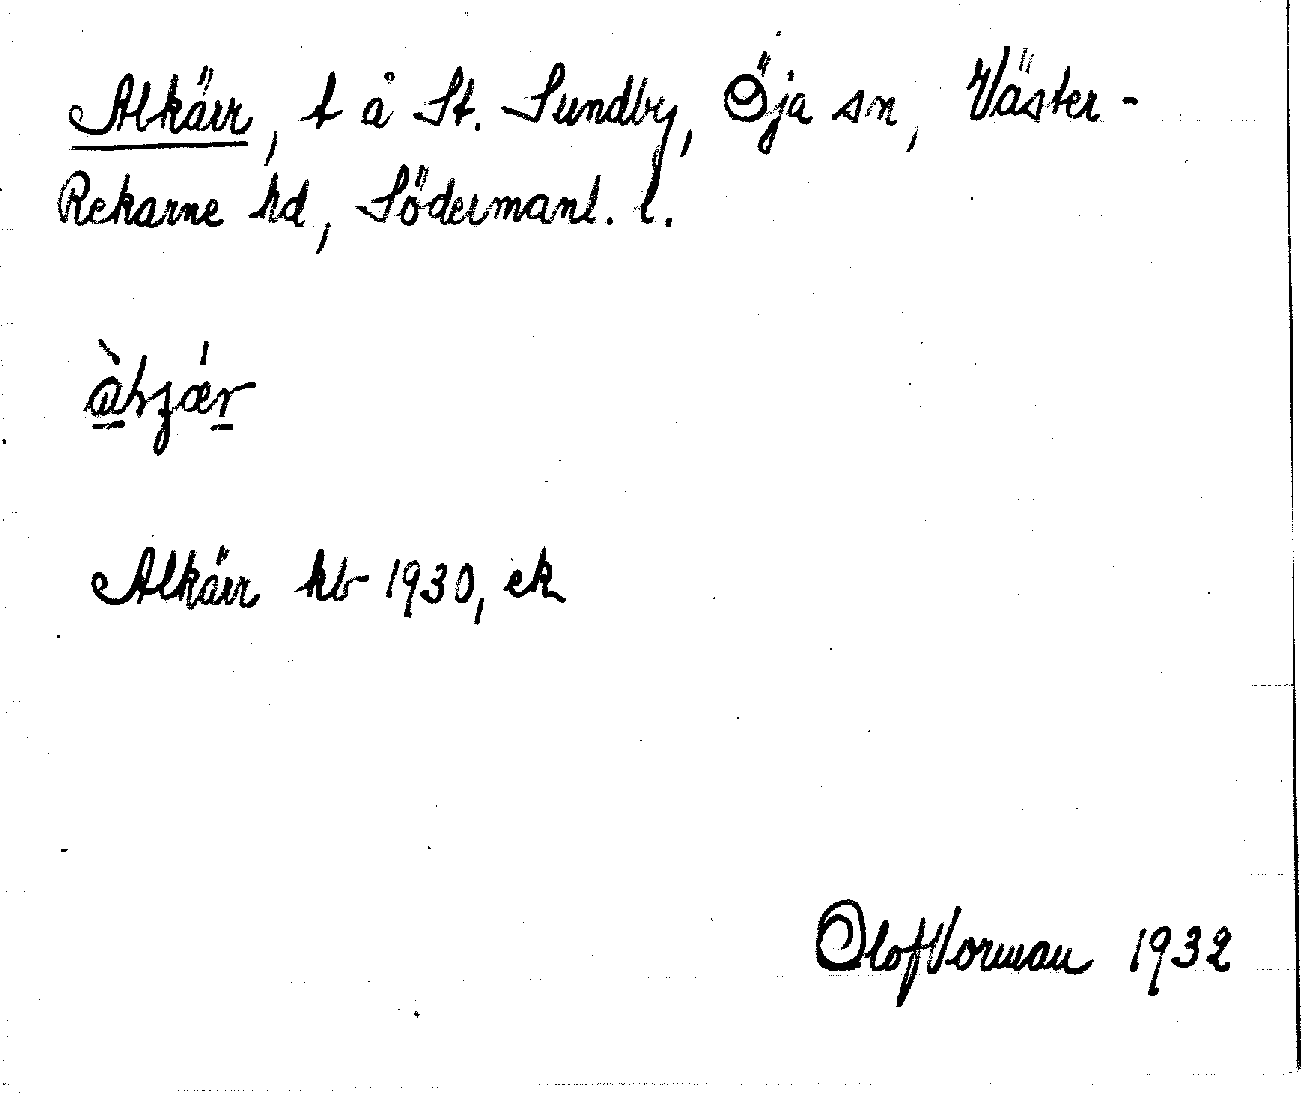 Alkärr, t å St. Sundby, Öja sn, Väster-
Rekarne hd, Södermanl. l.
Alkärr kb 1930, ek
Olof Vorman 1932